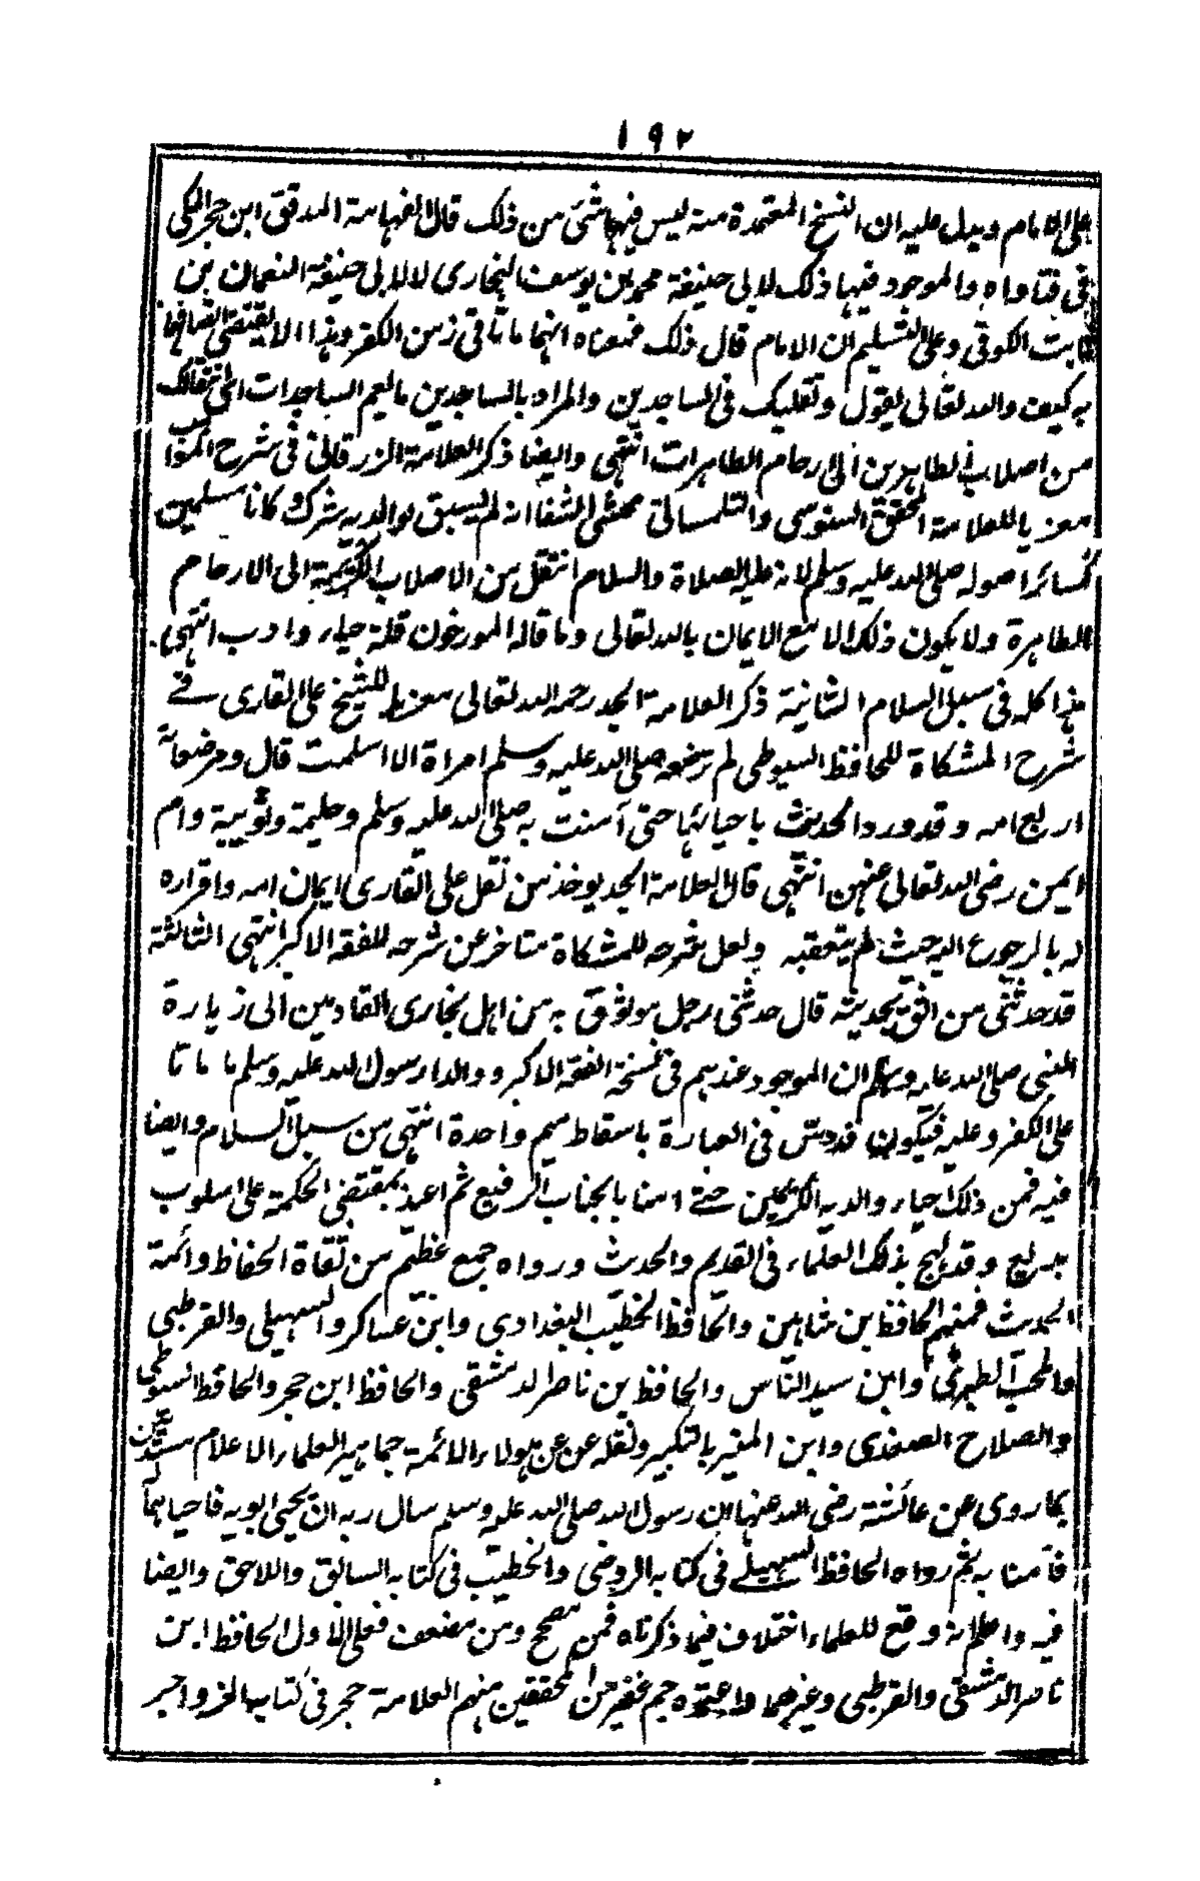 ١٩٢
على الامام ويدل عليه ان النسخ المعتمدة منه ليس فيها شئ من ذلك قال الفهامة المدقق ابن حجر المكى
فى فتاواه والموجود فيها ذلك لابى حنيفة محمد بن يوسف البخارى لا لابى حنيفة النعمان بن
ثابت الكوفى وعلى التسليم ان الامام قال ذلك فمعناه انهما ماتا فى زمن الكفر وهذا لا يقتضى اتصافهما
به كيف والله تعالى يقول وتقلبك فى الساجدين والمراد بالساجدين ما يعم الساجدات اى انتقالك
من اصلاب الطاهرين الى ارحام الطاهرات انتهى وايضا ذكر العلامة الزرقانى فى شرح المواهب
معزيا للعلامة المحقق السنوسى والتلمسانى محشى الشفا انه لم يسبق لوالديه شرك وكانا مسلمين
كسائر اصوله صلى الله عليه وسلم لانه عليه الصلاة والسلام انتقل من الاصلاب الكريمة الى الارحام
الطاهرة ولا يكون ذلك الا مع الايمان بالله تعالى وما قاله المورخون قلة حياء وادب انتهى.
هذا كله فى سبل السلام الثانية ذكر العلامة الجد رحمه الله تعالى معزيا للشيخ على القارى فے
شرح المشكاة للحافظ السيوطى لم ترضعه صلى الله عليه وسلم امراة الا اسلمت قال ومرضعاته
اربع امه وقد ورد الحديث باحيائها حتى آمنت به صلى الله عليه وسلم وحليمة وثويبة وام
ايمن رضى الله تعالى عنهن انتهى قال العلامة الجد يوخذ من نقل على القارى ايمان امه واقراره
له بالرجوع اليه حيث لم يتعقبه ولعل شرحه للمشكاة متاخر عن شرحه للفقه الاكبر انتهى الثالثة
قد حدثنى من اثق بحديثه قال حدثنى رجل موثوق به من اهل بخارى القادمين الى زيارة
النبى صلى الله عليه وسلم ان الموجود عندهم فى نسخة الفقه الاكبر ووالدا رسول الله عليه وسلم ما ماتا
على الكفر وعليه فيكون قد دس فى العبارة باسقاط ميم واحدة انتهى من سبل السلام وايضا
فيه فمن ذلك احياء والديه الكريمين حتے امنا بالجناب الرفيع ثم اعيد بمقتضى الحكمة على اسلوب
بديع وقد لهج بذلك العلماء فى القديم والحدث ورواه جمع عظيم من ثقاة الحفاظ وائمة
الحديث فمنهم الحافظ بن شاهين والحافظ الخطيب البغدادى وابن عساكر والسهيلى والقرطبى
والمحب الطبرى وابن سيد الناس والحافظ بن ناصر الدمشقى والحافظ ابن حجر والحافظ السيوطى
والصلاح الصفدى وابن المنير بالتكبير ونقله عن عن هولاء الائمة جماهير العلماء الاعلام مستدلين
بما روى عن عائشة رضى الله عنها ان رسول الله صلى الله عليه وسلم سال ربه ان يحيى ابويه فاحياهما له
فآمنا به ثم رواه الحافظ السهيلے فى كتابه الروض والخطيب فى كتابه السابق واللاحق وايضا
فيه واعلم انه وقع للعلماء اختلاف فيما ذكرناه فمن مصحح ومن مضعف فعلى الاول الحافظ ابن
ناصر الدمشقى والقرطبى وغيرهما واعتمده جم غفير من المحققين منهم العلامة حجر فى كتاب الزواجر